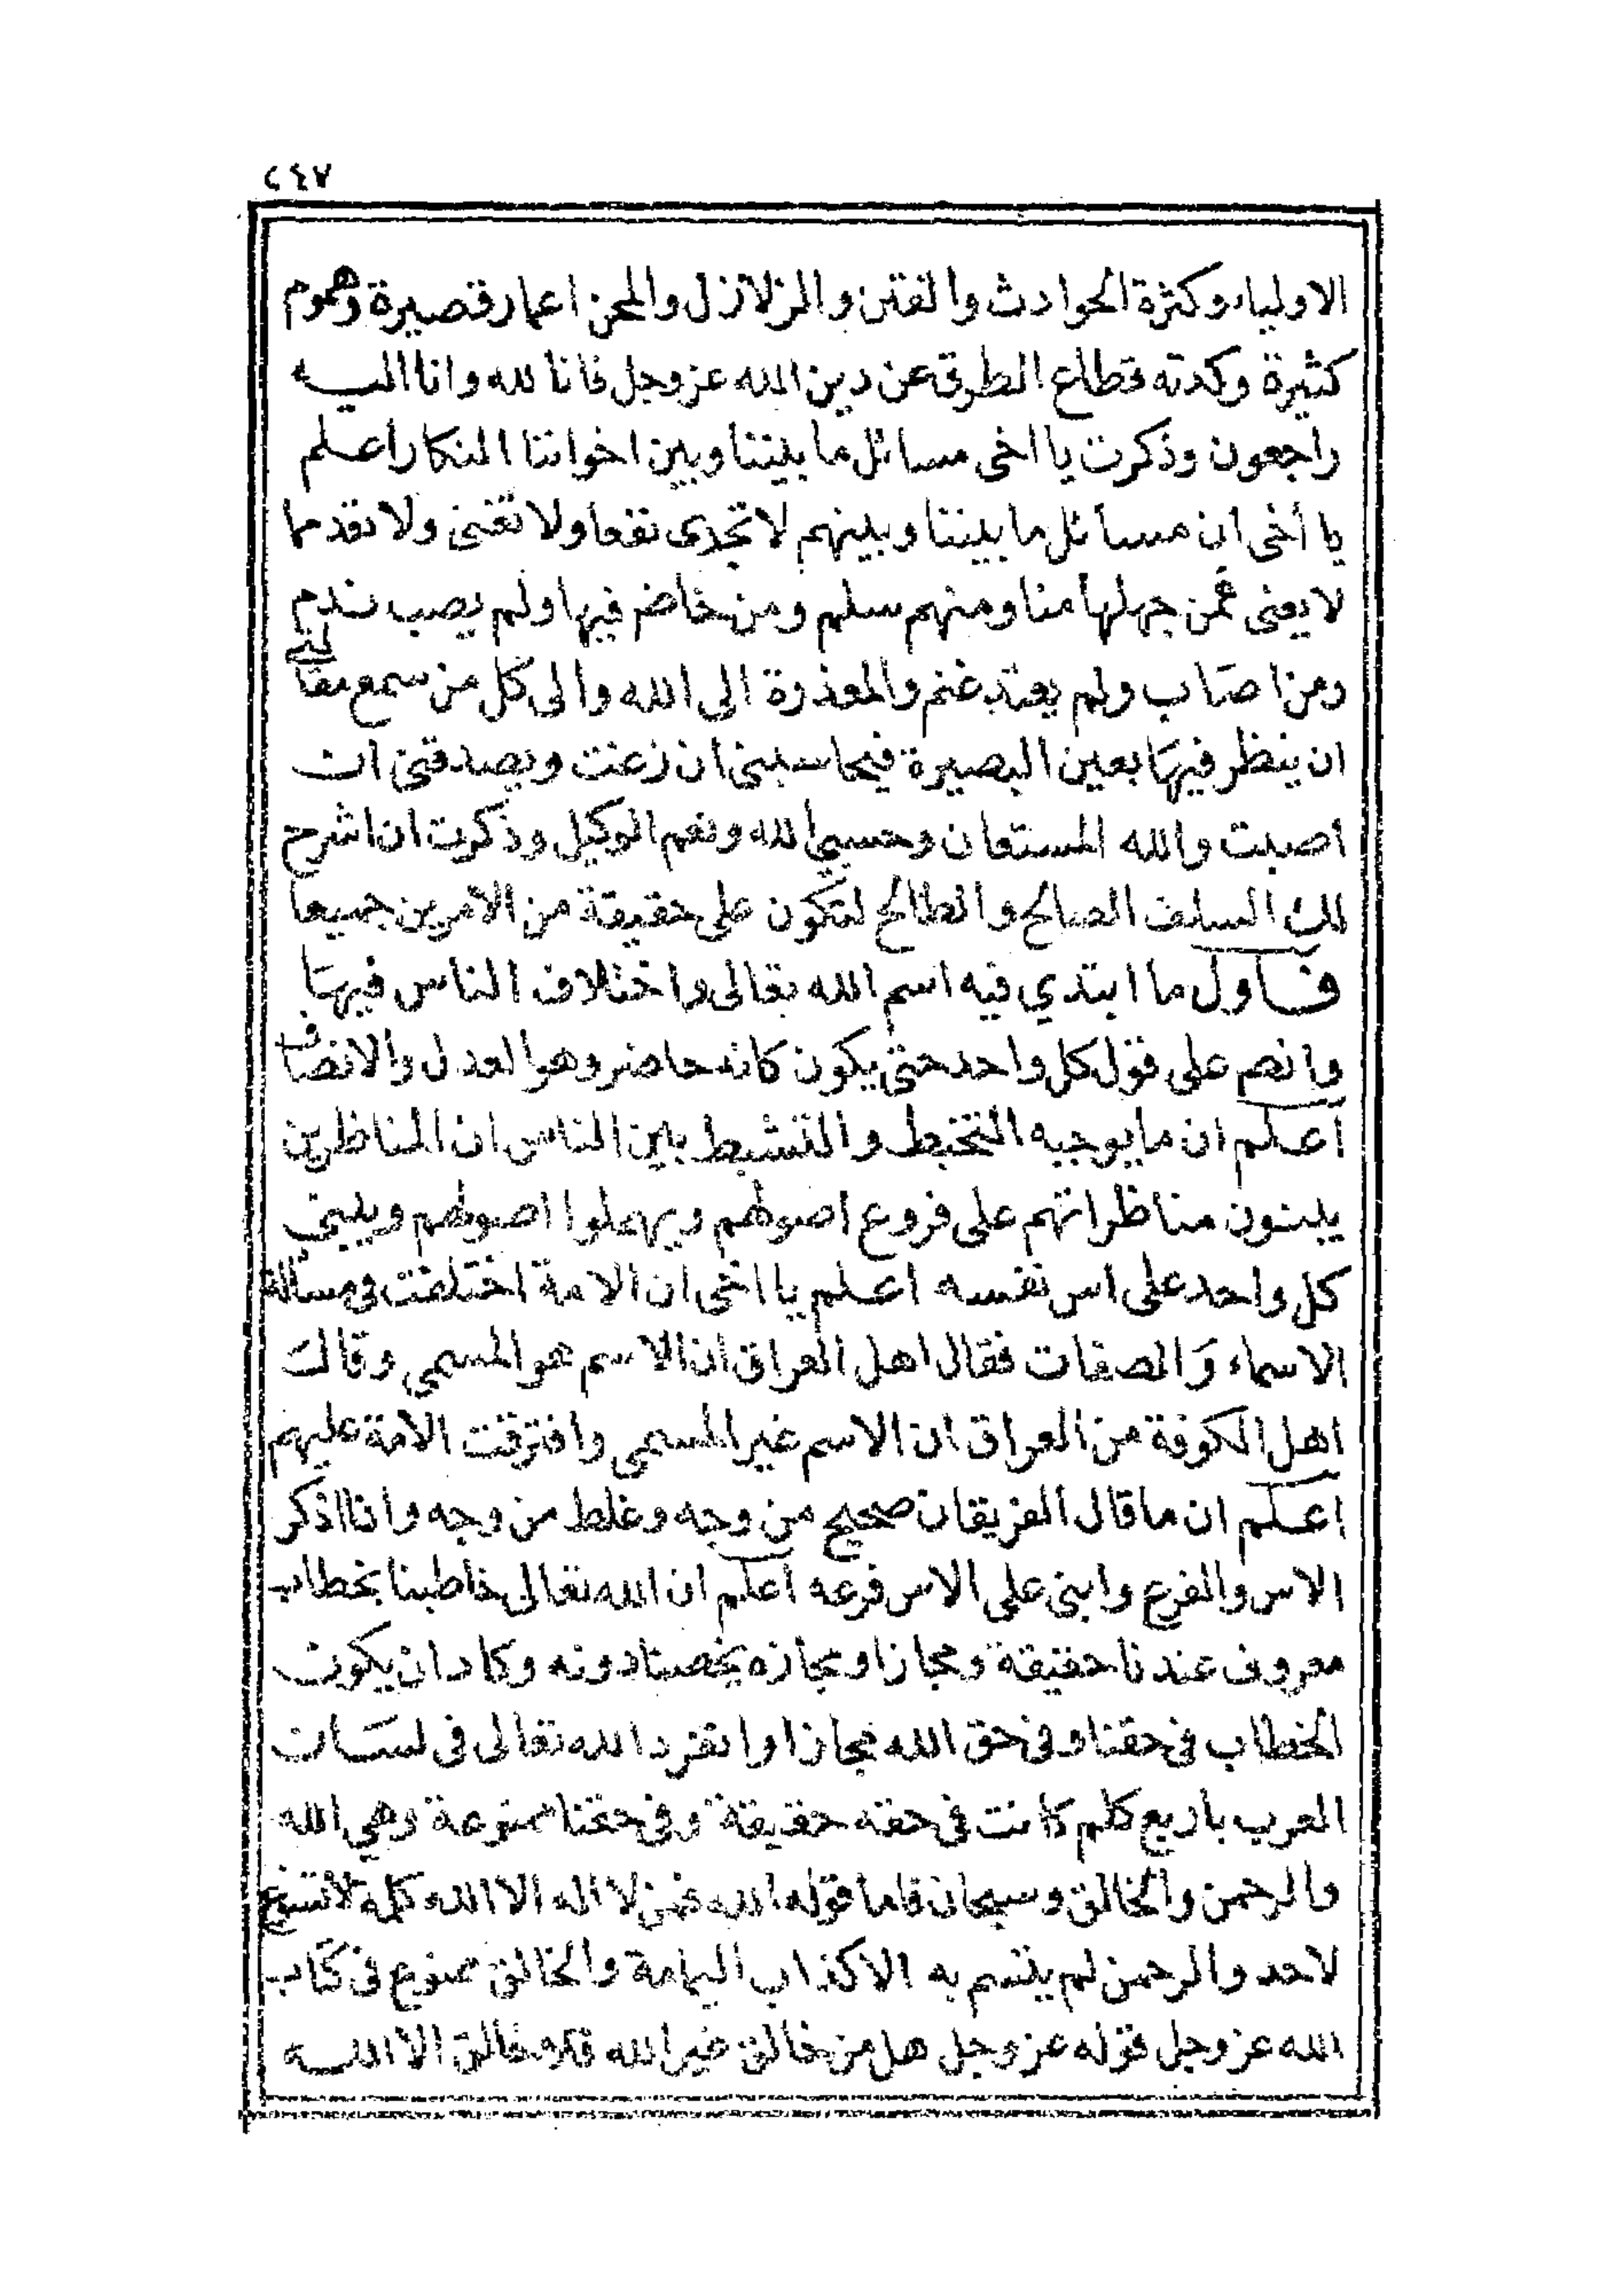 ٢٤٧
الاولياء وكثرة الحوادث والفتن والزلازل والمحن اعمار قصيرة وهموم
كثيرة وكدته قطاع الطرق عن دين الله عز وجل فانا لله وانا اليه
راجعون وذكرت يا اخى مسائل ما بيننا وبين اخواننا النكار اعلم
يا أخى ان مسائل ما بيننا وبينهم لا تجدى نفعا ولا تغنى ولا نقدمها
لا يعنى عمن جهلها منا ومنهم سلم ومن خاض فيها ولم يصب ندم
ومن اصاب ولم يعتد غنم والمعذرة الى الله والى كل من سمع مقالتى
ان ينظر فيها بعين البصيرة فيحاسبنى ان زغت ويصدقنى ان
اصبت والله المستعان وحسبي الله ونعم الوكيل وذكرت ان اشرح
لك السلف الصالح والطالح لتكون على حقيقة من الامرين جميعا
فاول ما ابتدي فيه اسم الله تعالى واختلاف الناس فيها
وانصم على قول كل واحد حتى يكون كانه حاضر وهو العدل والانصاف
اعلم ان ما يوجبه التخبط والتشبط بين الناس ان المناظرين
يبنون مناظراتهم على فروع اصولهم ويهملوا اصولهم ويبني
كل واحد على اس نفسه اعلم يا اخى ان الامة اختلفت فى مسألة
الاسماء والصفات فقال اهل العراق ان الاسم هو المسمى وقال
اهل الكوفة من العراق ان الاسم غير المسمى وافترقت الامة عليهم
اعلم ان ما قال الفريقان صحيح من وجه وغلط من وجه وانا اذكر
الاس والفرع وابنى على الاس فرعه اعلم ان الله تعالى خاطبنا بخطاب
معروف عندنا حقيقة ومجازا ومجازه يخصنا دونه وكاد ان يكون
الخطاب فى حقنا وفى حق الله مجازا وانفرد الله تعالى فى لسان
العرب باربع كلم كانت فى حقه حقيقة وفى حقنا ممنوعة وهي الله
والرحمن والخالق وسبحان فاما قوله الله فمن لا اله الا الله كلمة لا تسوغ
لاحد والرحمن لم يتسم به الا كذاب اليمامة والخالق ممنوع فى كتاب
الله عز وجل قوله عز وجل هل من خالق غير الله فلا خالق الا الله